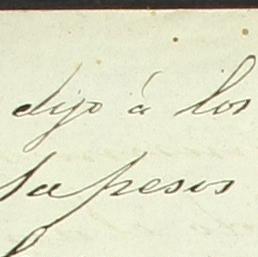 dijo á los
pesos